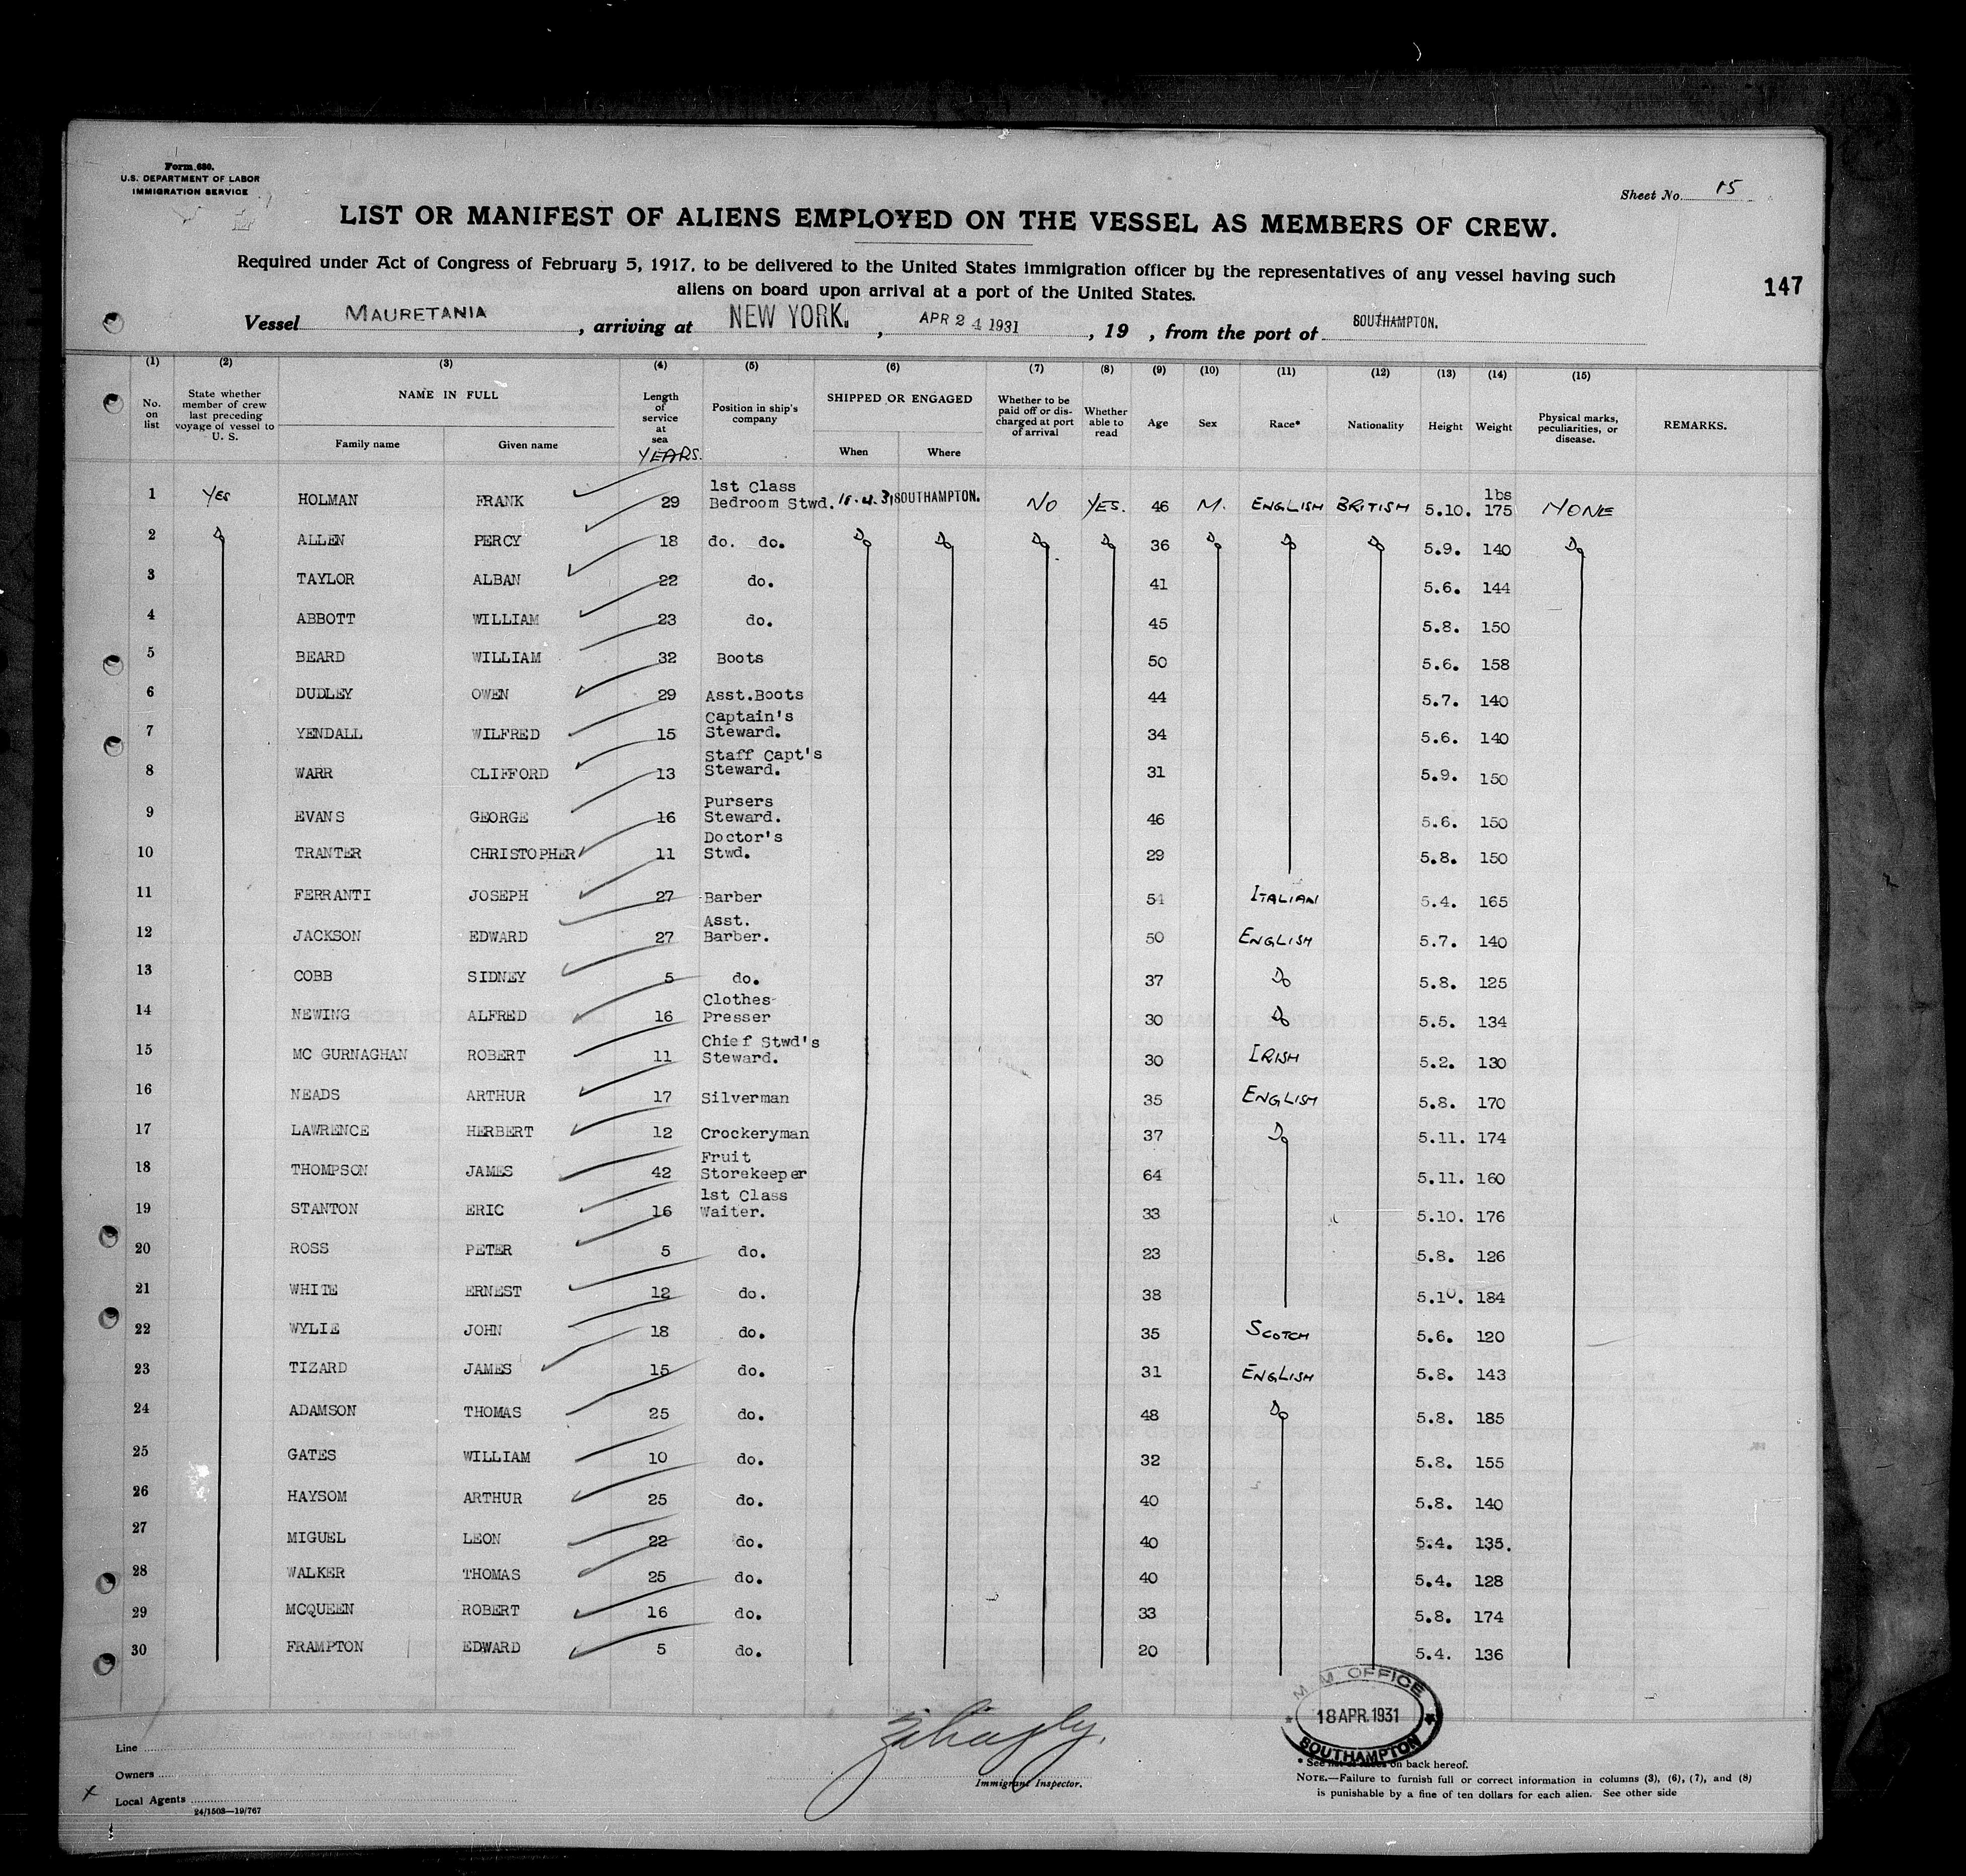 Form 680.
U.S. DEPARTMENT OF LABOR
IMMIGRATION SERVICE
Sheet No. 15
LIST OR MANIFEST OF ALIENS EMPLOYED ON THE VESSEL AS MEMBERS OF CREW.
Required under Act of Congress of February 5, 1917, to be delivered to the United States immigration officer by the representatives of any vessel having such
aliens on board upon arrival at a port of the United States.
147
Vessel MAURETANIA, arriving at NEW YORK., APR 24 1931, 19 , from the port of SOUTHAMPTON.
(1) (2) (3) (4) (5) (6) (7) (8) (9) (10) (11) (12) (13) (14) (15)
No. on list State whether member of crew last preceding voyage of vessel to U. S. NAME IN FULL Family name Given name Length of service at sea YEARS. Position in ship's company SHIPPED OR ENGAGED When Where Whether to be paid off or discharged at port of arrival Whether able to read Age Sex Race* Nationality Height Weight Physical marks, peculiarities, or disease. REMARKS.
1 YES HOLMAN FRANK 29 1st Class Bedroom Stwd. SOUTHAMPTON. NO YES. 46 M. ENGLISH BRITISH 5.10. lbs 175 NONE
2 Do ALLEN PERCY 18 do. do. Do Do Do Do 36 Do Do Do 5.9. 140 Do
3 TAYLOR ALBAN 22 do. 41 5.6. 144
4 ABBOTT WILLIAM 23 do. 45 5.8. 150
5 BEARD WILLIAM 32 Boots 50 5.6. 158
6 DUDLEY OWEN 29 Asst.Boots 44 5.7. 140
7 YENDALL WILFRED 15 Captain's Steward. 34 5.6. 140
8 WARR CLIFFORD 13 Staff Capt's Steward. 31 5.9. 150
9 EVANS GEORGE 16 Pursers Steward. 46 5.6. 150
10 TRANTER CHRISTOPHER 11 Doctor's Stwd. 29 5.8. 150
11 FERRANTI JOSEPH 27 Barber 54 ITALIAN 5.4. 165
12 JACKSON EDWARD 27 Asst. Barber. 50 ENGLISH 5.7. 140
13 COBB SIDNEY 5 do. 37 Do 5.8. 125
14 NEWING ALFRED 16 Clothes Presser 30 Do 5.5. 134
15 MC GURNAGHAN ROBERT 11 Chief Stwd's Steward. 30 IRISH 5.2. 130
16 NEADS ARTHUR 17 Silverman 35 ENGLISH 5.8. 170
17 LAWRENCE HERBERT 12 Crockeryman 37 Do 5.11. 174
18 THOMPSON JAMES 42 Fruit Storekeeper 64 5.11. 160
19 STANTON ERIC 16 1st Class Waiter. 33 5.10. 176
20 ROSS PETER 5 do. 23 5.8. 126
21 WHITE ERNEST 12 do. 38 5.10. 184
22 WYLIE JOHN 18 do. 35 SCOTCH 5.6. 120
23 TIZARD JAMES 15 do. 31 ENGLISH 5.8. 143
24 ADAMSON THOMAS 25 do. 48 Do 5.8. 185
25 GATES WILLIAM 10 do. 32 5.8. 155
26 HAYSOM ARTHUR 25 do. 40 5.8. 140
27 MIGUEL LEON 22 do. 40 5.4. 135.
28 WALKER THOMAS 25 do. 40 5.4. 128
29 MCQUEEN ROBERT 16 do. 33 5.8. 174
30 FRAMPTON EDWARD 5 do. 20 5.4. 136
M. M. OFFICE
18 APR. 1931
SOUTHAMPTON
Line
Owners
Local Agents
24/1503—19/767
Immigrant Inspector.
* See on back hereof.
NOTE.—Failure to furnish full or correct information in columns (3), (6), (7), and (8)
is punishable by a fine of ten dollars for each alien. See other side